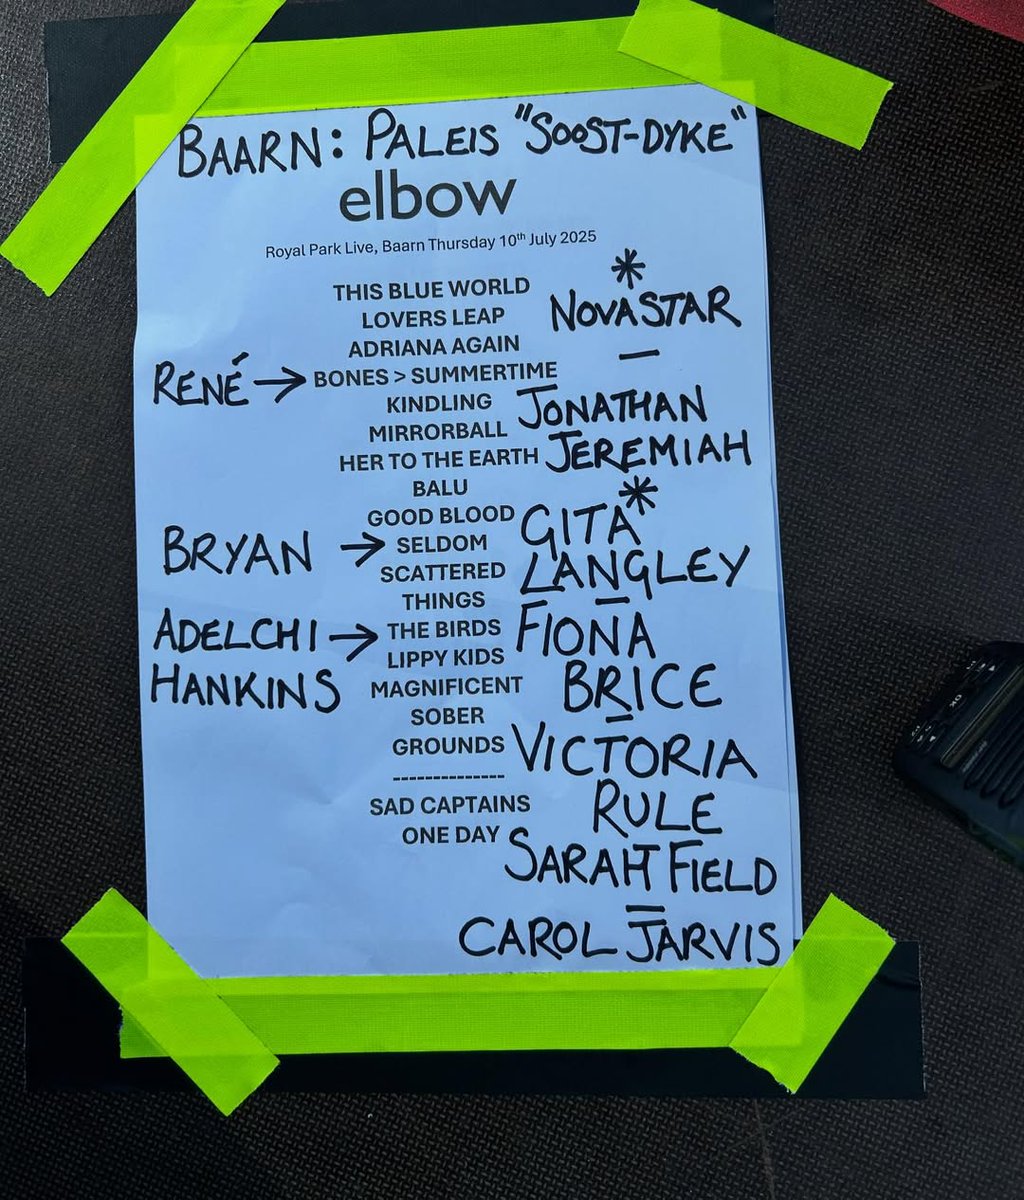 BAARN: PALEIS "SOOST-DYKE"
elbow
Royal Park Live, Baarn Thursday 10th July 2025
THIS BLUE WORLD
LOVERS LEAP
ADRIANA AGAIN
BONES > SUMMERTIME
KINDLING
MIRRORBALL
HER TO THE EARTH
BALU
GOOD BLOOD
SELDOM
SCATTERED
THINGS
THE BIRDS
LIPPY KIDS
MAGNIFICENT
SOBER
GROUNDS
--------------
SAD CAPTAINS
ONE DAY
RENÉ →
BRYAN →
ADELCHI →
HANKINS
*
NOVASTAR
—
JONATHAN
JEREMIAH
*
GITA
LANGLEY
—
FIONA
BRICE
—
VICTORIA
RULE
—
SARAH FIELD
—
CAROL JARVIS